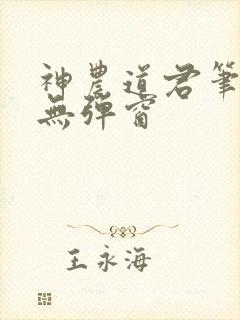 神農道君筆
無彈窗
王永海